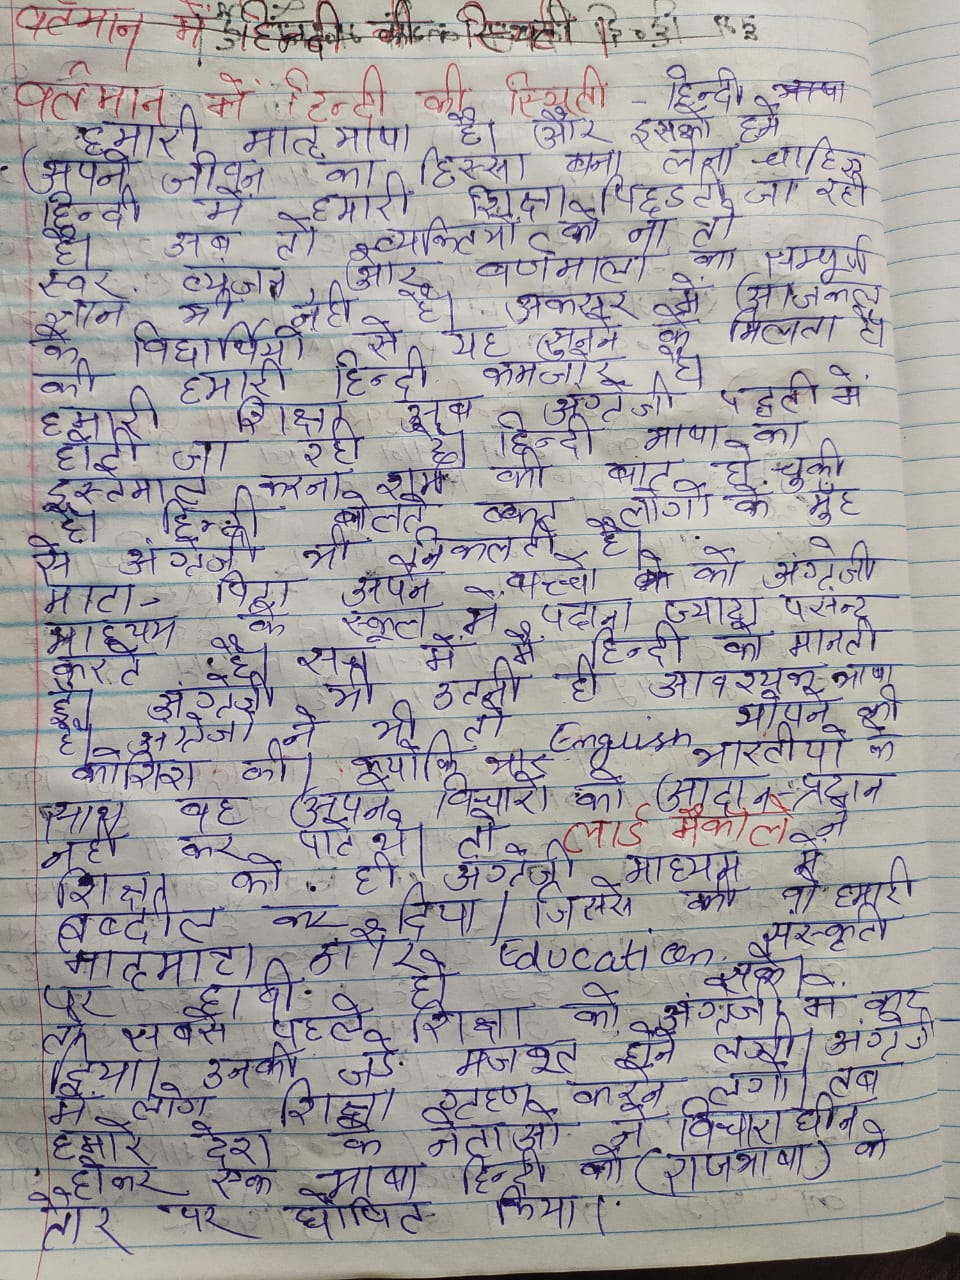 वर्तमान में हिन्दी की स्थिती
वर्तमान में हिन्दी की स्थिती - हिन्दी भाषा
हमारी मातृभाषा है। और इसको हमें
अपने जीवन का हिस्सा बना लेना चाहिए
हिन्दी में हमारी शिक्षा पिछडती जा रही
है। अब तो व्यक्तियों को ना तो
स्वर व्यंजन और वर्णमाला का सम्पूर्ण
ज्ञान भी नही है। अकसर में आजकल
के विद्यार्थियों से यह सुनने के मिलता है।
की हमारी हिन्दी कमजोर है।
हमारी शिक्षा अब अंग्रेजी पद्वती में
होती जा रही है। हिन्दी भाषा का
इस्तेमाल करना शर्म की बात हो चुकी
है। हिन्दी बोलते वक्त लोगों के मुँह
से अंग्रेजी भी निकलती है।
माता- पिता अपने बच्चों को अंग्रेजी
माध्यम के स्कूल में पढाना ज्यादा पसन्द
करते है। सच में मैं हिन्दी को मानती
हूँ। अंग्रेजी भी उतनी ही आवश्यक भाषा
है। अंग्रेजो ने भी तो English थोपने की
कोशिश की। क्योंकि भारतीयो के
साथ वह अपने विचारो को आदान-प्रदान
नही कर पाते थे। तो लार्ड मैकाले ने
शिक्षा को ही अंग्रेजी माध्यम में
तब्दील कर दिया। जिससे की वो हमारी
मातृभाषा और Education, संस्कृती
पर हावी हो सके।
तो सबसे पहले शिक्षा को अंग्रेजी में कर
दिया। उनकी जडे मजबूत होने लगी। अंग्रेजी
में लोग शिक्षा ग्रहण करने लगे। तब
हमारे देश के नेताओ ने विचाराधीन
होकर एक भाषा हिन्दी को (राजभाषा) के
तौर पर घोषित किया।